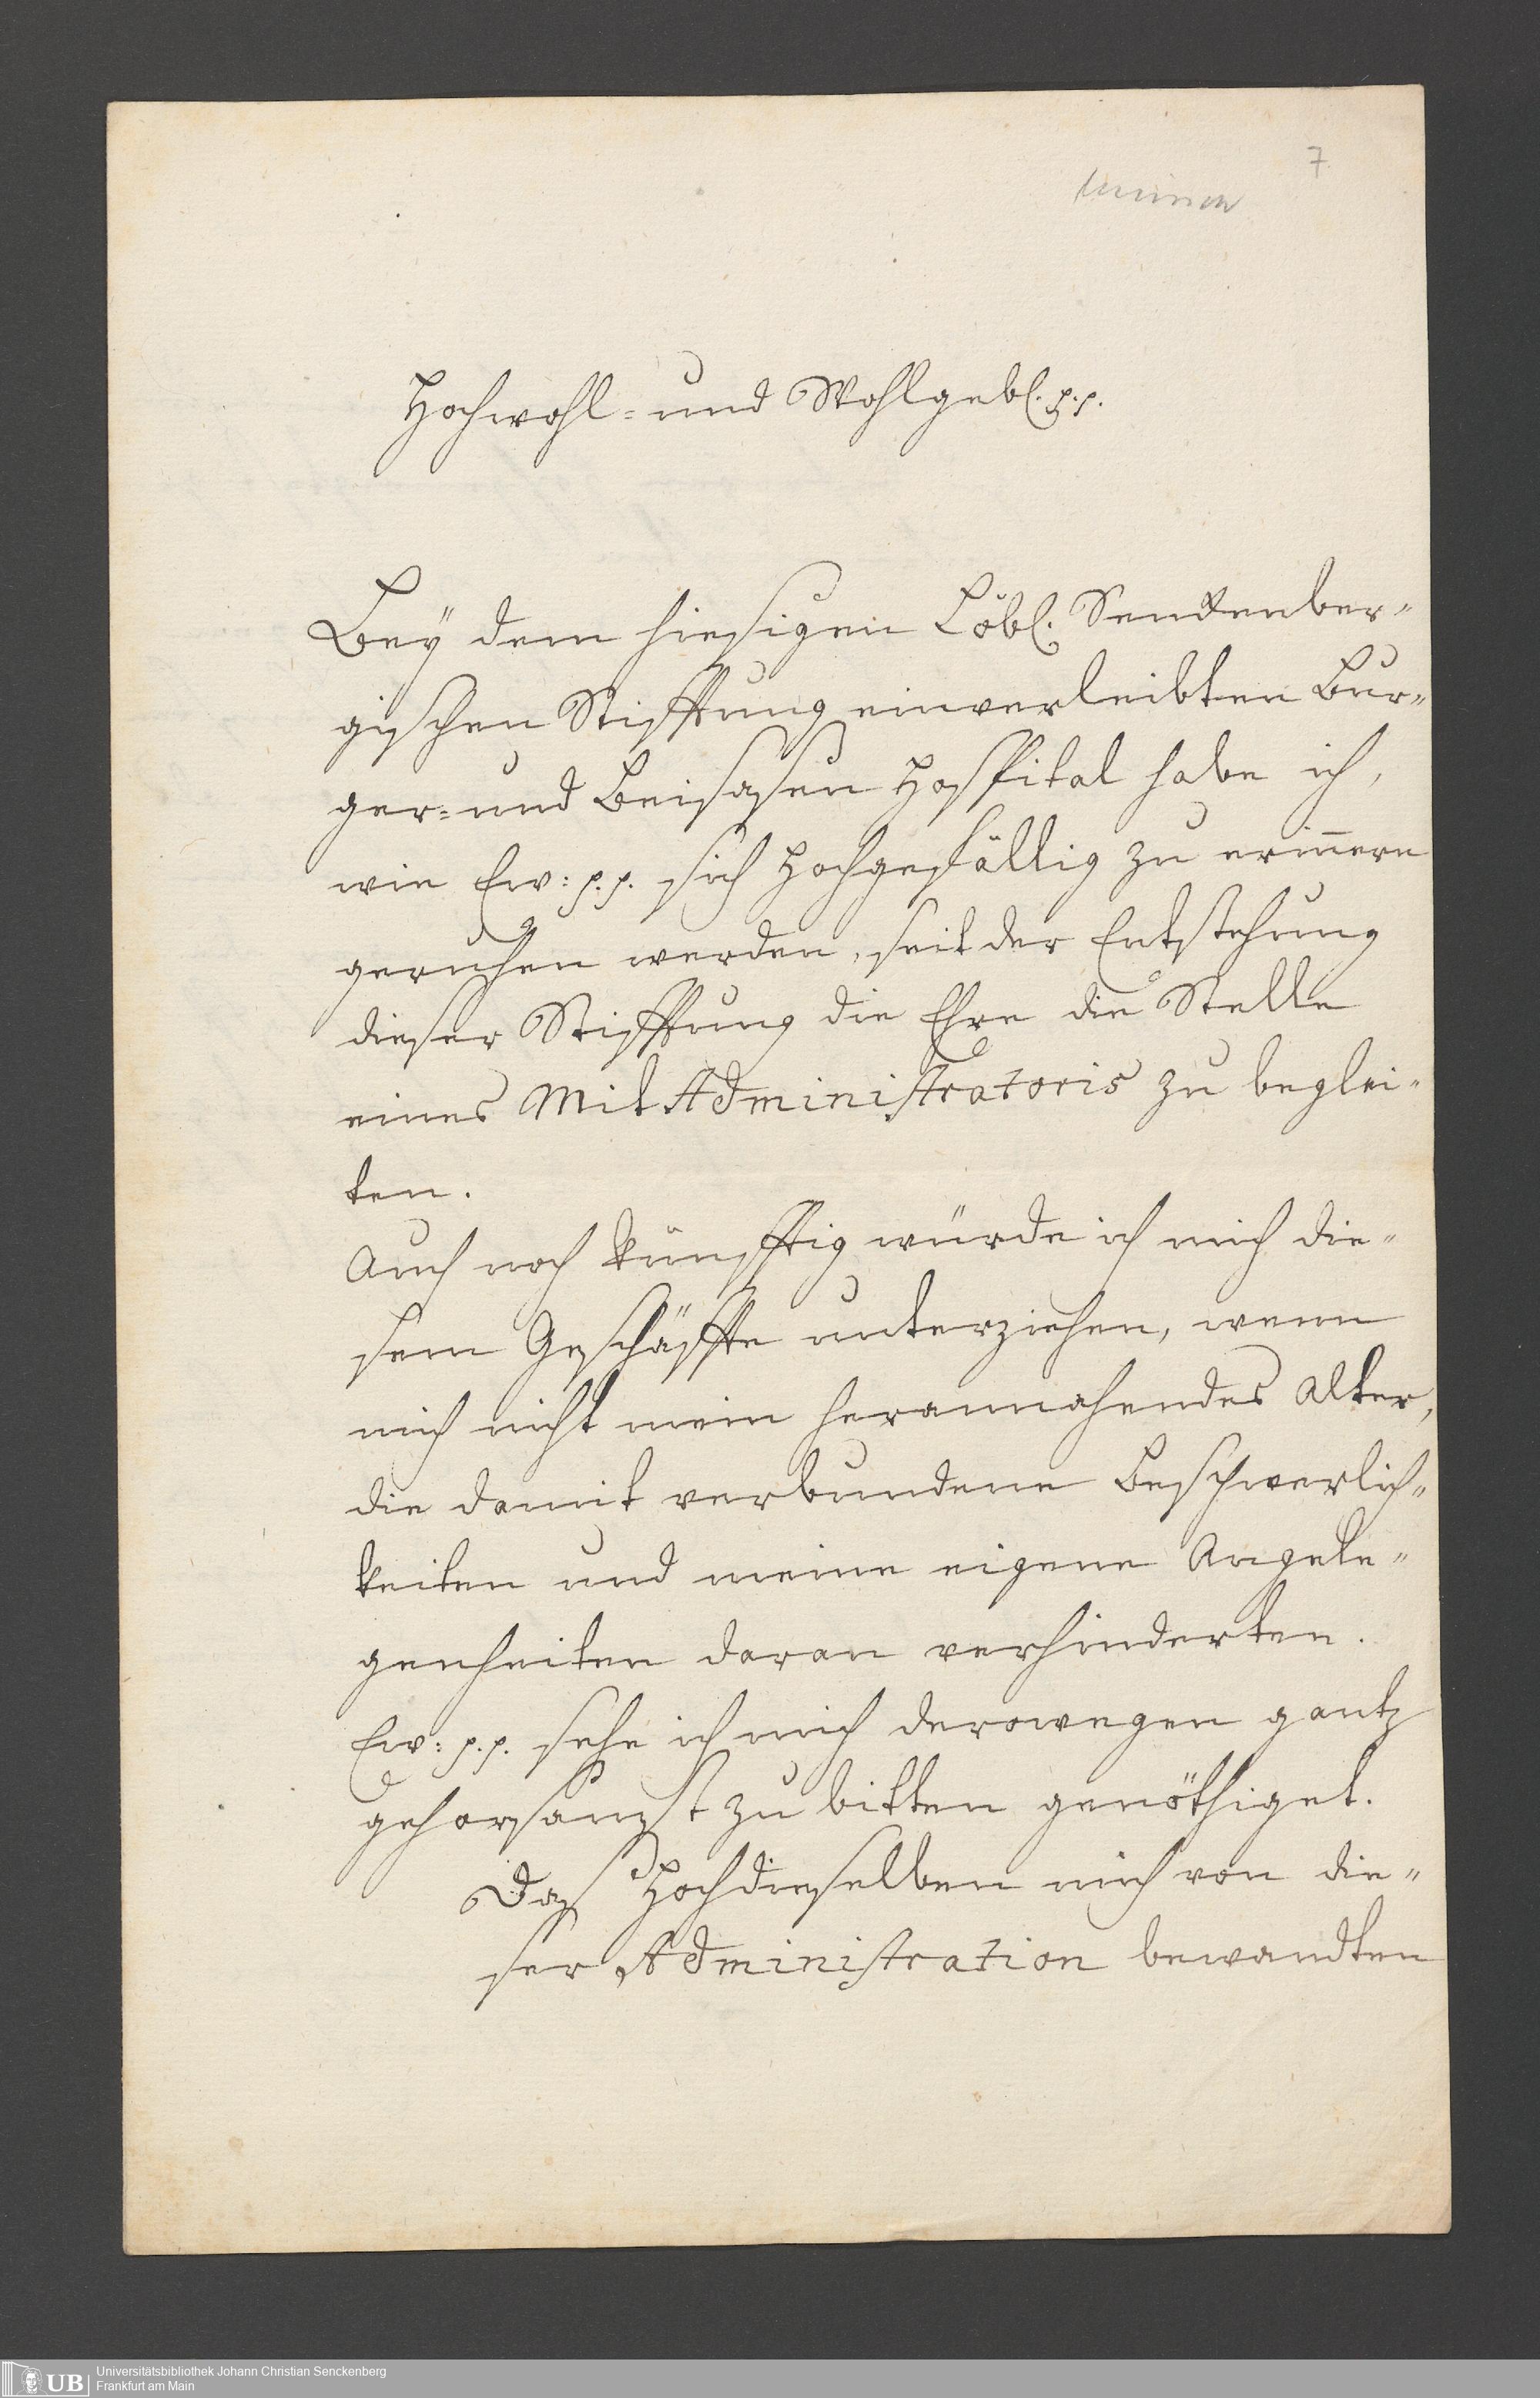 7
Hochwohl- und Wohlgebl. p. p.
Bey dem hiesigen Löbl. Senckenber-
gischen Stifftung einverleibten Bur-
ger- und Beisasen Hospital habe ich,
wie Ew: p. p. sich Hochgefällig zu erinnern
geruhen werden, seit der Entstehung
dieser Stifftung die Ehre die Stelle
eines Mit Administratoris zu beglei-
ten.
Auch noch künfftig würde ich mich die-
sem Geschäffte unterziehen, wenn
mich nicht mein herannahendes Alter,
die damit verbundene Beschwerlich-
keiten und meine eigene Angele-
genheiten daran verhinderten.
Ew: p. p. sehe ich mich derowegen gantz
gehorsamst zu bitten genöthiget.
Daß Hochdieselben mich von die-
ser Administration bewandten
UB
Universitätsbibliothek Johann Christian Senckenberg
Frankfurt am Main